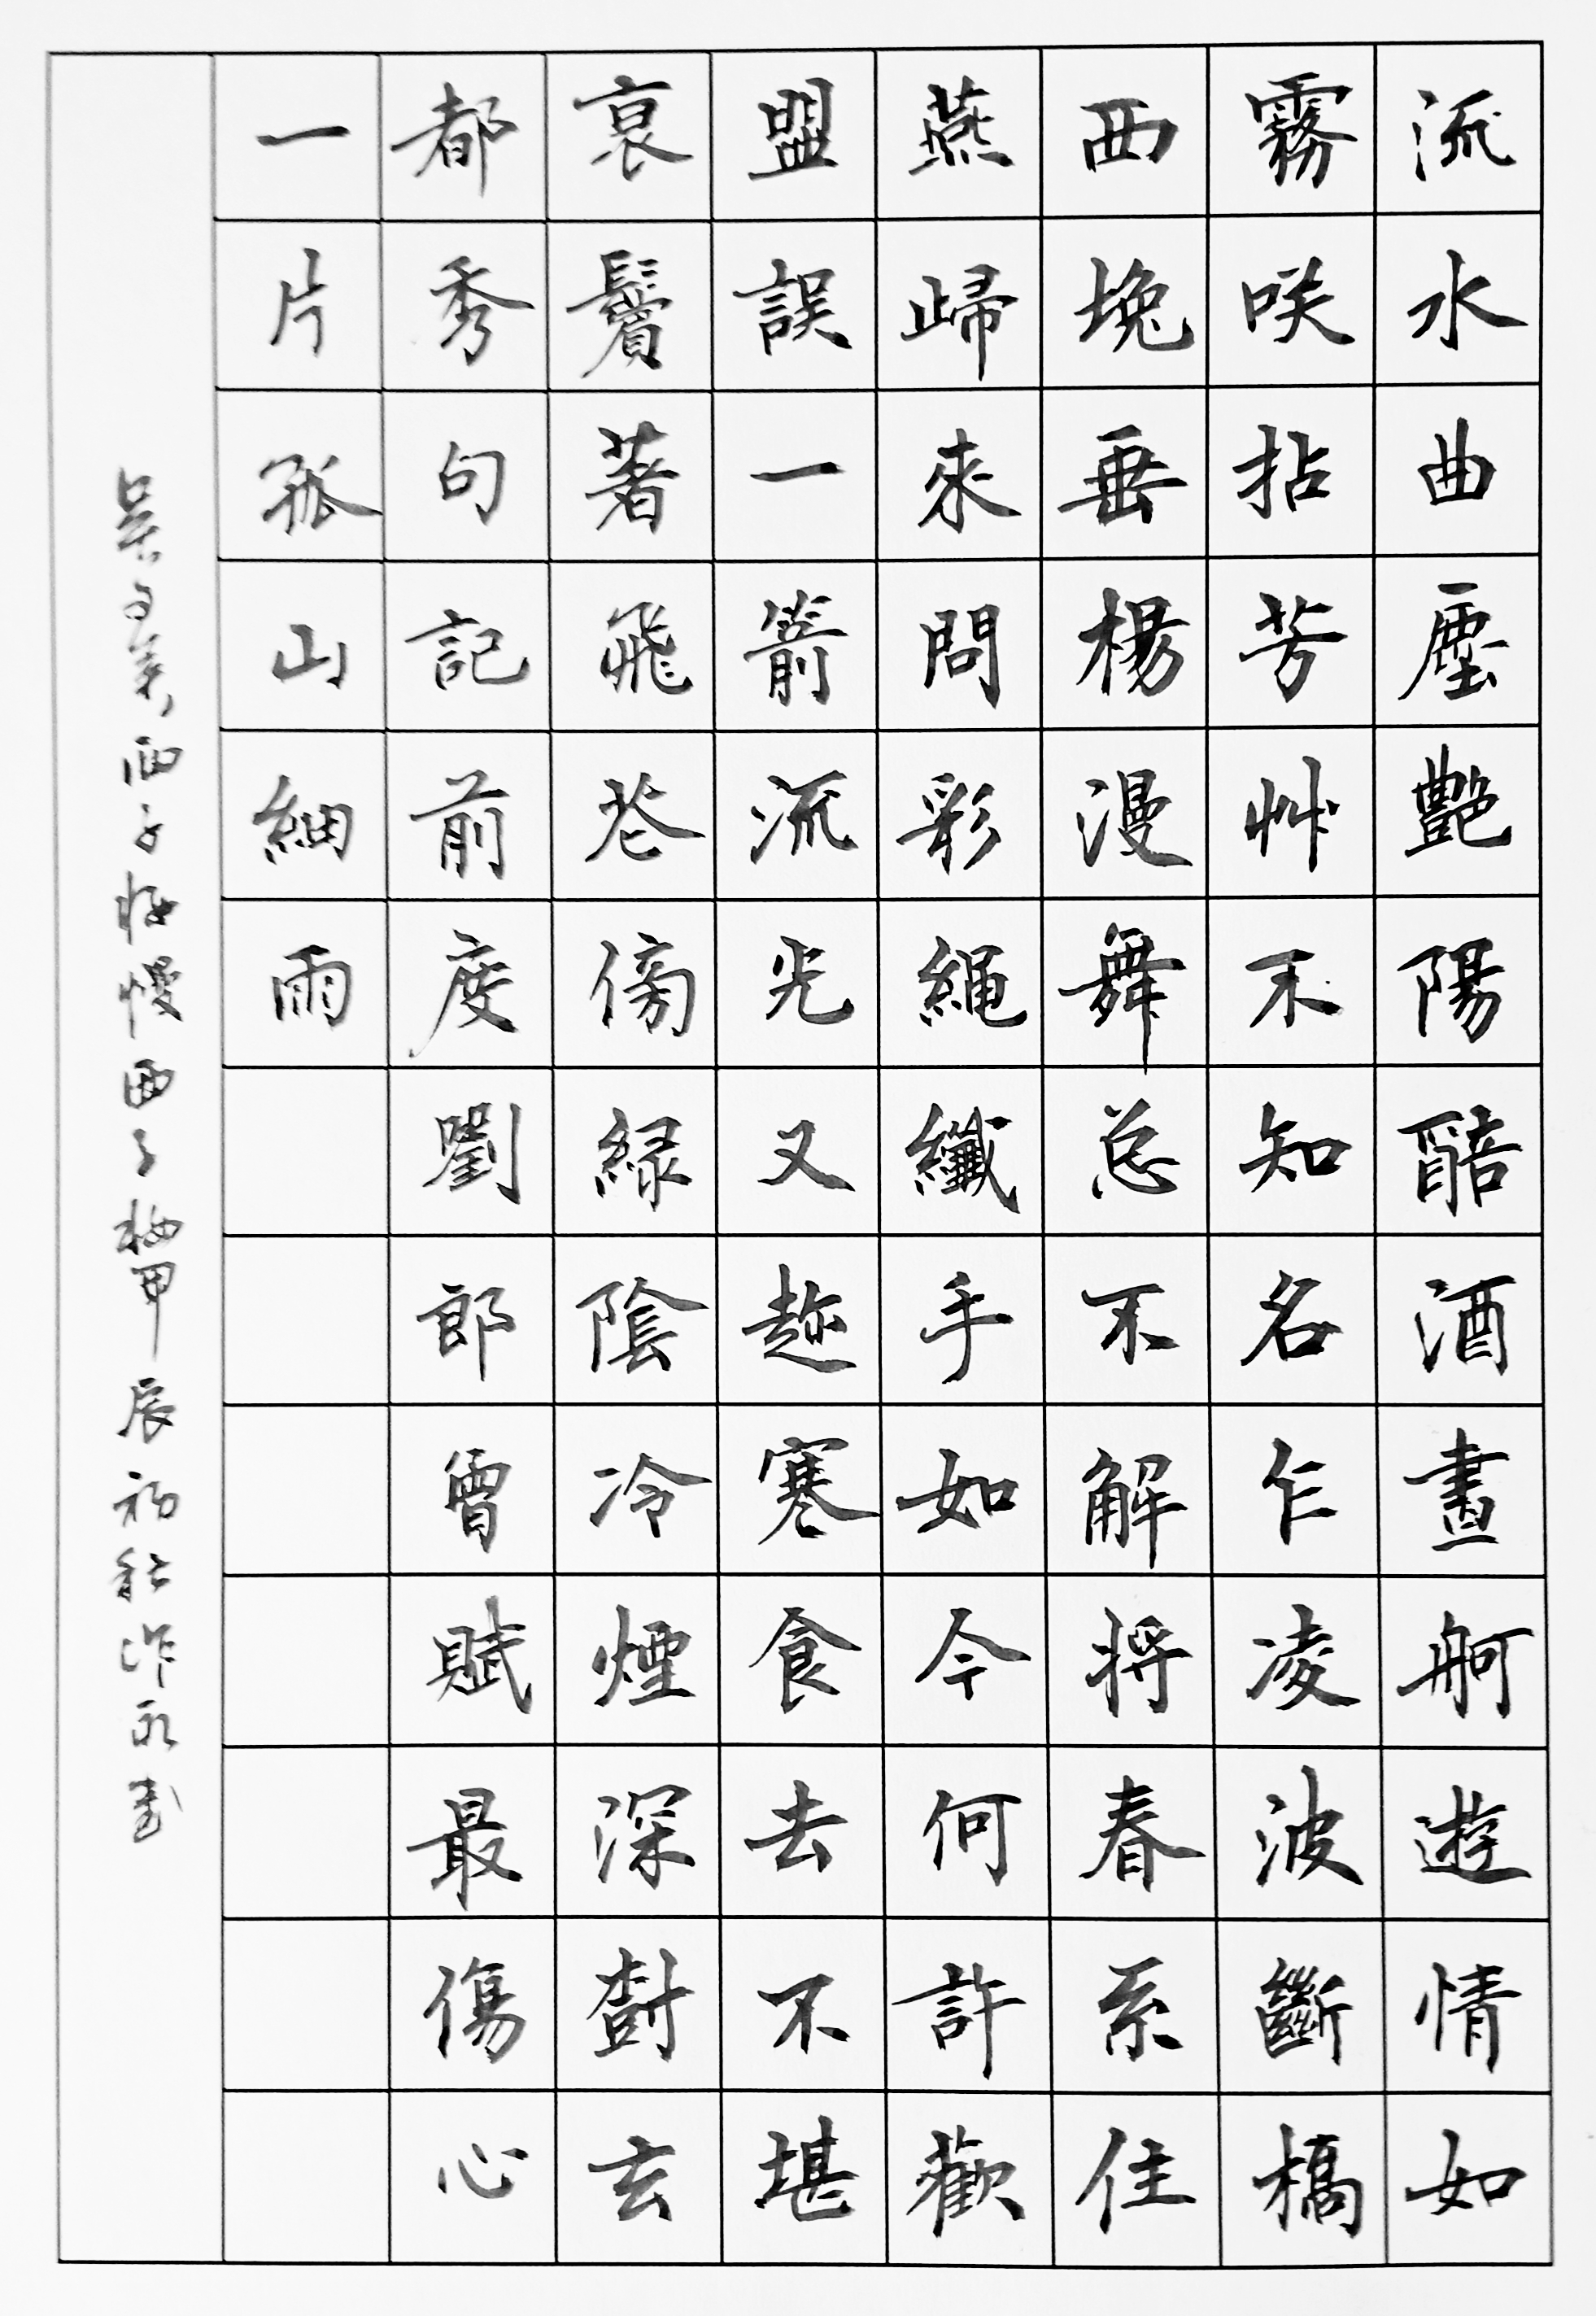 流水曲塵艷陽醅酒畫舸遊情如
霧咲拈芳艸不知名乍凌波斷橋
西堍垂楊漫舞总不解将春系住
燕歸來問彩繩纖手如今何許歡
盟誤一箭流光又趂寒食去不堪
衰鬢著飛花傍綠陰冷煙深樹玄
都秀句記前度劉郎曾賦最傷心
一片孤山細雨
吳文英西子妝慢西子妝甲辰初秋